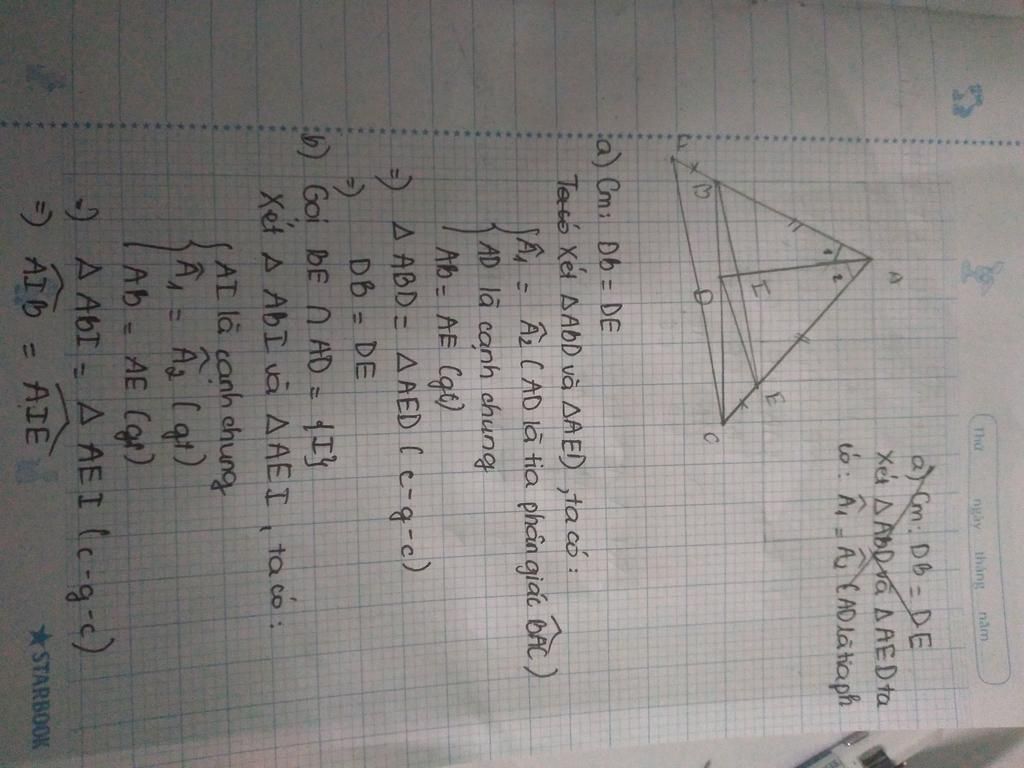 Thứ ngày tháng năm
a) Cm: DB = DE
Xét △ABD và △AED ta
có: Â₁ = Â₂ (AD là tia ph
A
1 2
I
E
B
D
C
a) Cm: DB = DE
Ta có Xét △AbD và △AED, ta có:
Â₁ = Â₂ (AD là tia phân giác bAC)
AD là cạnh chung
Ab = AE (gt)
=) △ABD = △AED (c-g-c)
=) DB = DE
b) Gọi DE ∩ AD = {I}
Xét △AbI và △AEI, ta có:
AI là cạnh chung
Â₁ = Â₂ (gt)
Ab = AE (gt)
=) △AbI = △AEI (c-g-c)
=) AIb = AIE
★STARBOOK